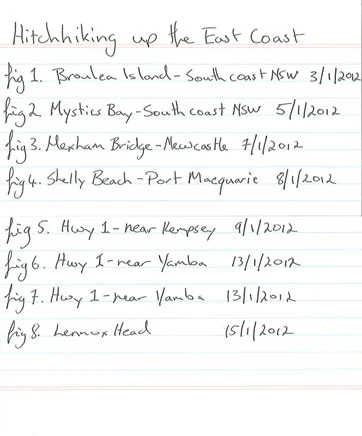 Hitchhiking up the East Coast
fig 1. Broulea Island - South coast NSW 3/1/2012
fig 2. Mystics Bay - South coast NSW 5/1/2012
fig 3. Hexham Bridge - Newcastle 7/1/2012
fig 4. Shelly Beach - Port Macquarie 8/1/2012
fig 5. Hwy 1 - near Kempsey 9/1/2012
fig 6. Hwy 1 - near Yamba 13/1/2012
fig 7. Hwy 1 - near Yamba 13/1/2012
fig 8. Lennox Head 15/1/2012